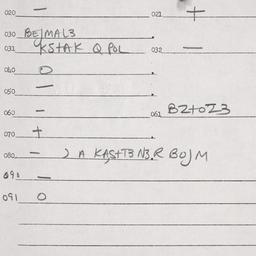 020 — 021 +
030 BEJMAL3
031 KSTAK Q POL 032 —
040 O
050 —
060 — 061 BZtoZ3
070 +
080 — ) A KASTT3 N3.R BOJM
091 —
091 O